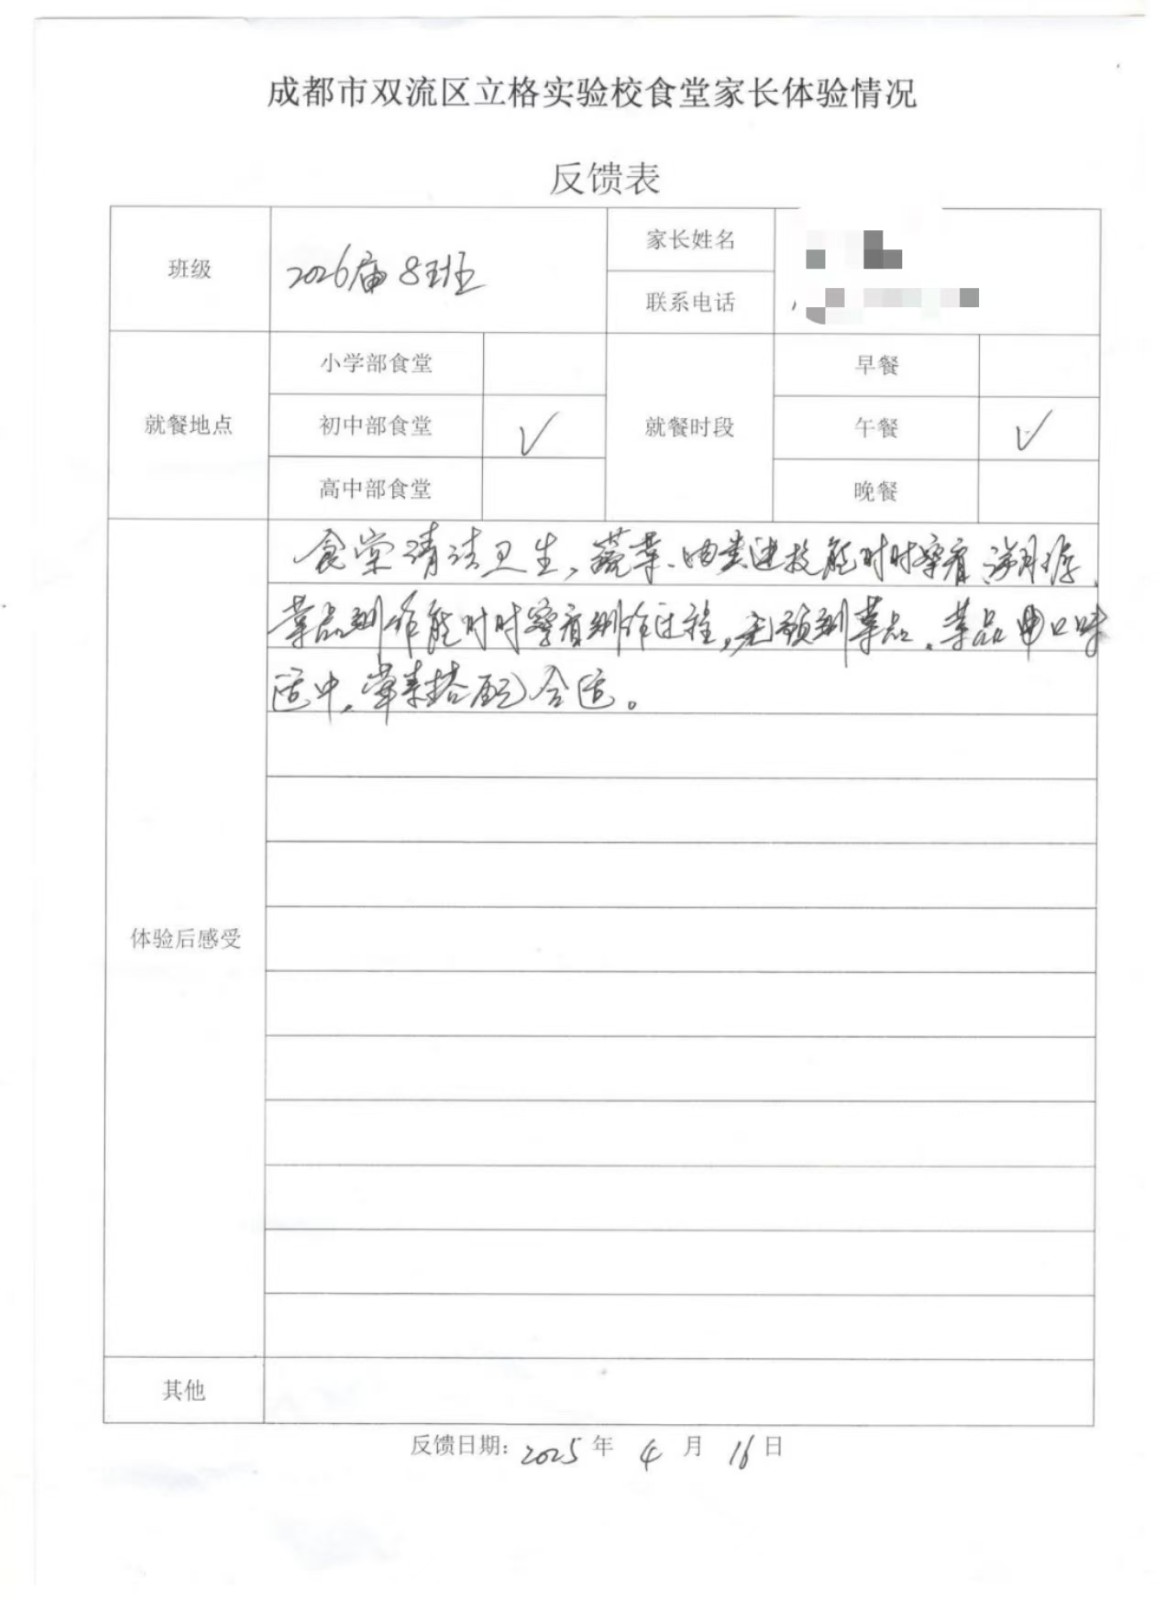 成都市双流区立格实验校食堂家长体验情况
反馈表
班级
2026届8班
家长姓名
联系电话
就餐地点
小学部食堂
初中部食堂 √
高中部食堂
就餐时段
早餐
午餐 √
晚餐
体验后感受
食堂清洁卫生，蔬菜、肉类 能时时察看
菜品制作能时时察看制作过程，无预制菜品，菜品 口味
适中，荤素搭配合适。
其他
反馈日期：2025年4月16日